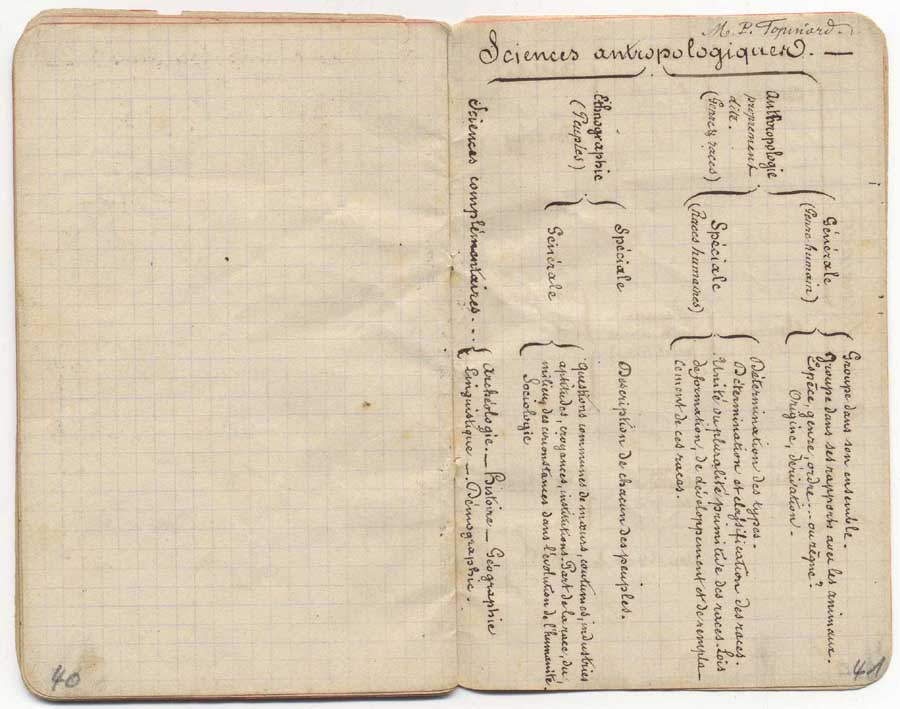 M. P. Topinard.
Sciences antropologiques. —
Anthropologie
proprement
dite.
(Genre & races)
Générale
(Genre humain)
Groupe dans son ensemble.
Groupe dans ses rapports avec les animaux.
Espèce, genre, ordre... ou règne?
Origine, dérivation.
Spéciale
(Races humaines)
Détermination des types.
Détermination et classification des races.
Unité ou pluralité primitive des races. Lois
de formation, de développement et de rempla-
cement de ces races.
Ethnographie
(Peuples)
Spéciale
Description de chacun des peuples.
Générale
Questions communes de mœurs, coutumes, industries
aptitudes, croyances, institutions. Part de la race, du
milieu, des circonstances dans l'évolution de l'humanité.
Sociologie
Sciences complémentaires...
Archéologie. — Histoire — Géographie
Linguistique —. Démographie.
40
41